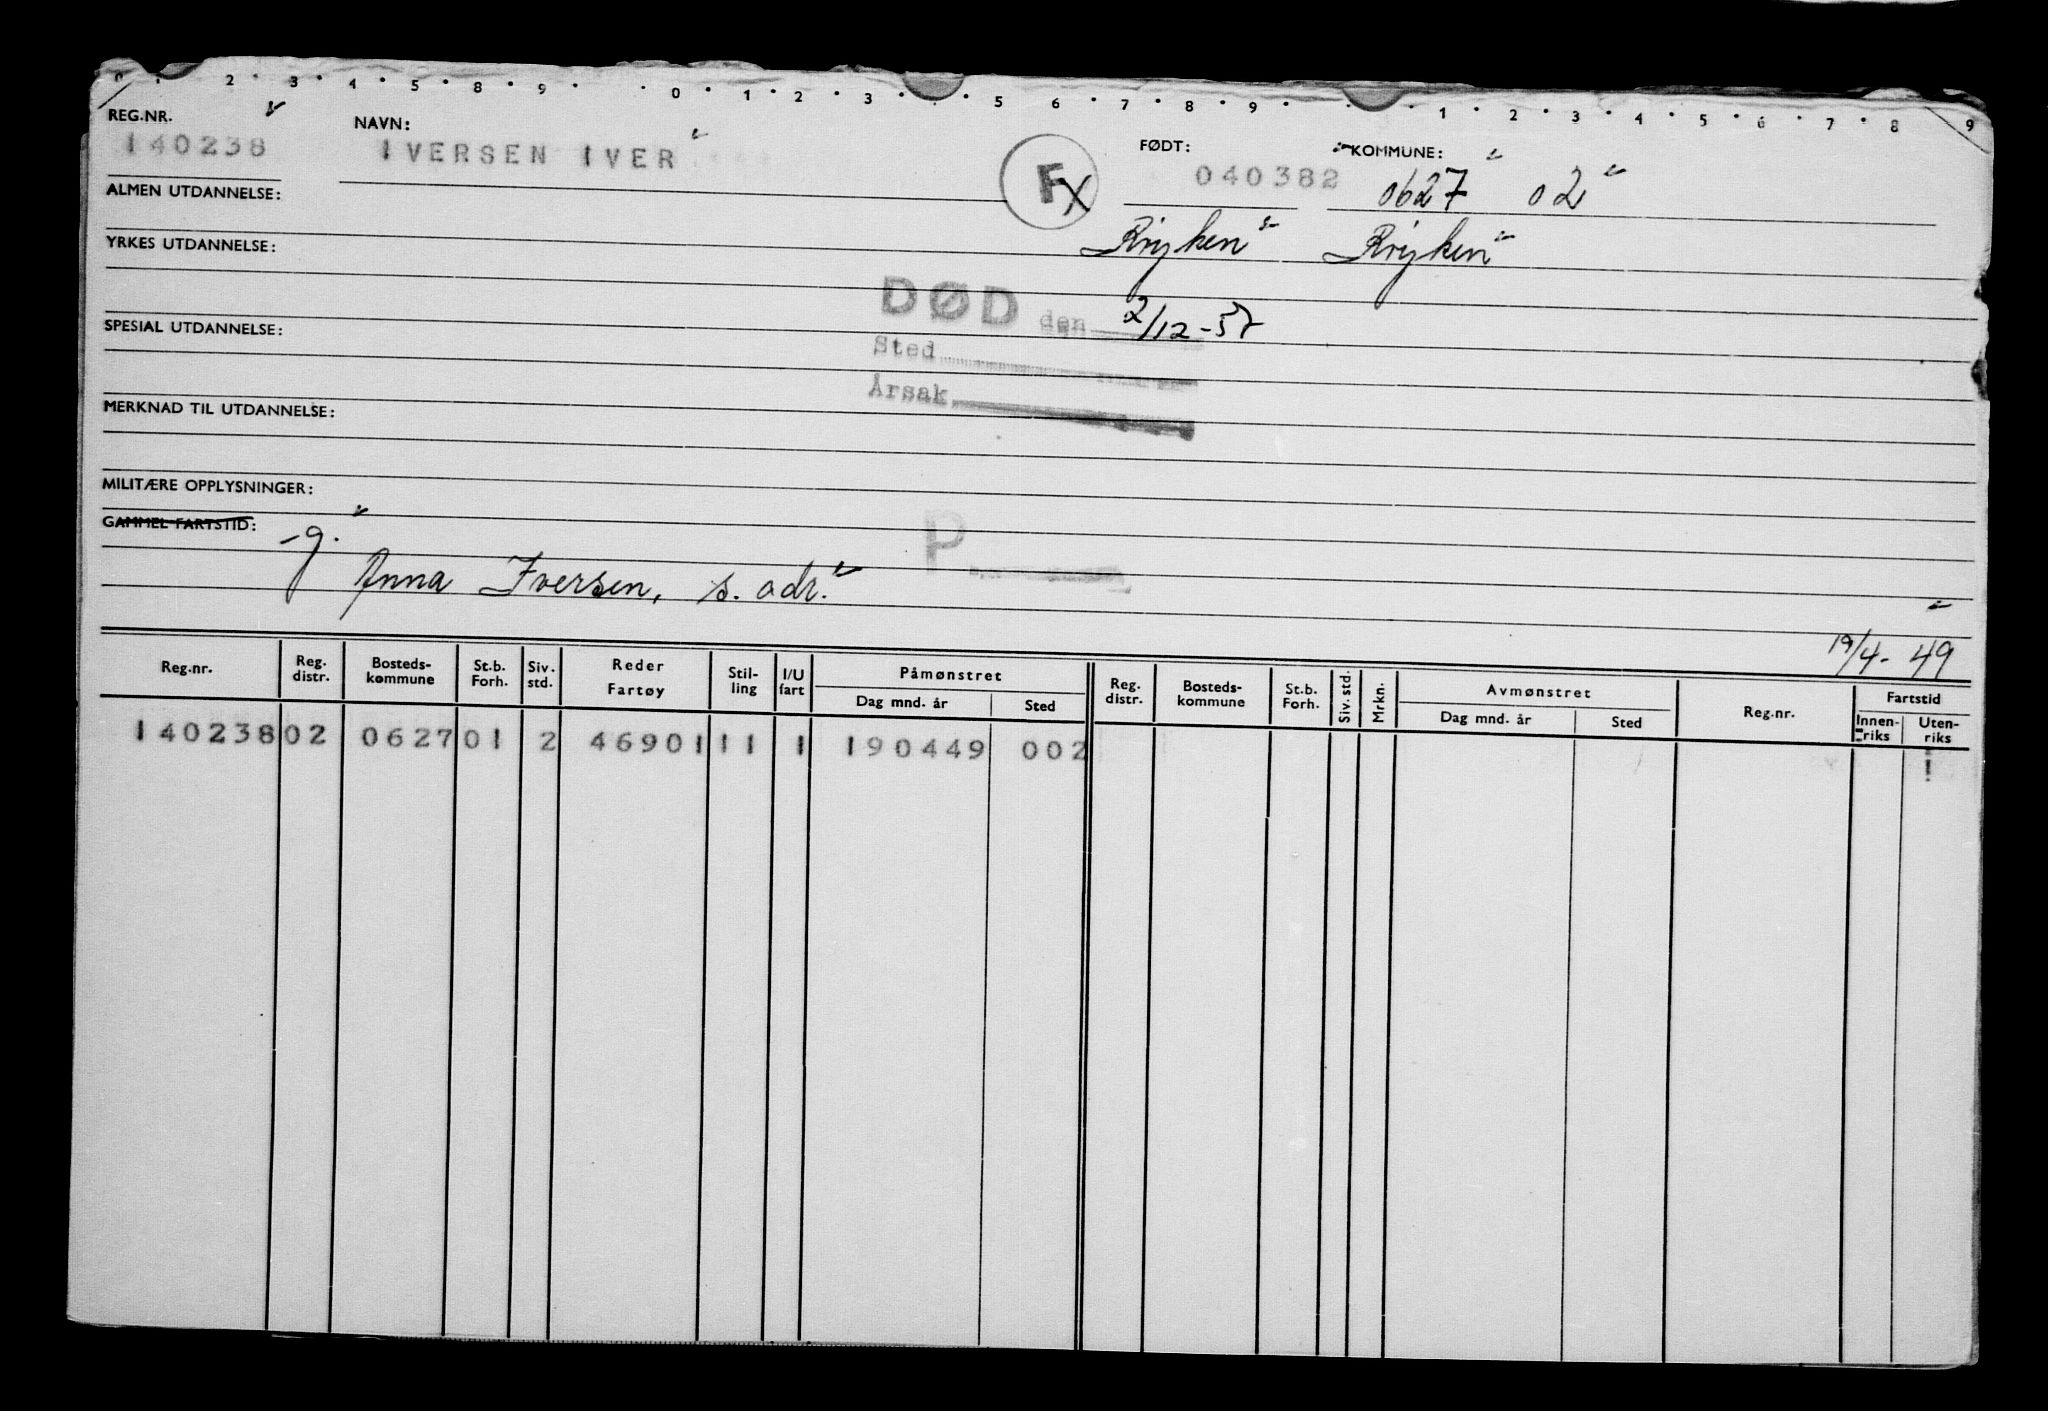 0 · 2 · 3 · 4 · 5 · 8 · 9 · · 0 · 1 · 2 · 3 · · 5 6 · 7 · 8 · 9 · · · 1 · 2 · 3 · 4 · 5 · 6 · 7 · 8 9
REG.NR. NAVN: FØDT: KOMMUNE:
140238 IVERSEN IVER FX 040382 0627 02
ALMEN UTDANNELSE:
Røyken Røyken
YRKES UTDANNELSE:
DØD den 2/12-57
SPESIAL UTDANNELSE:
Sted
Årsak
MERKNAD TIL UTDANNELSE:
MILITÆRE OPPLYSNINGER:
GAMMEL FARTSTID: -g.
P
Anna Iversen, s. adr.
19/4-49
Reg.nr. Reg. distr. Bosteds-kommune St.b. Forh. Siv. std. Reder Fartøy Stil-ling I/U fart Påmønstret Dag mnd. år Sted Reg. distr. Bosteds-kommune St.b. Forh. Siv. std. Mrkn. Avmønstret Dag mnd. år Sted Reg.nr. Fartstid Innen-riks Uten-riks
140238 02 0627 01 2 46901 11 1 190449 002 1